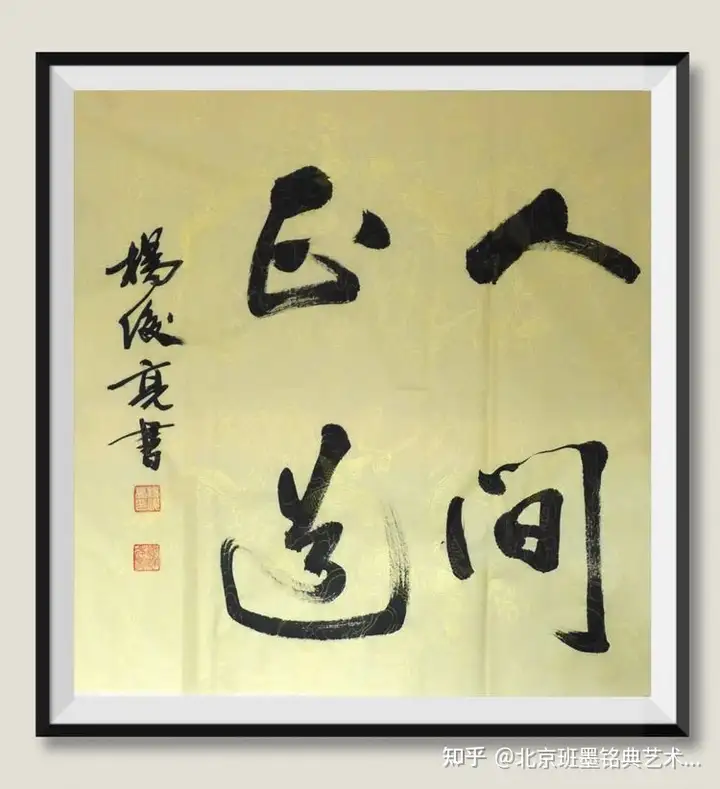 人间
正道
楊俊亮書
知乎 @北京班墨铭典艺术...